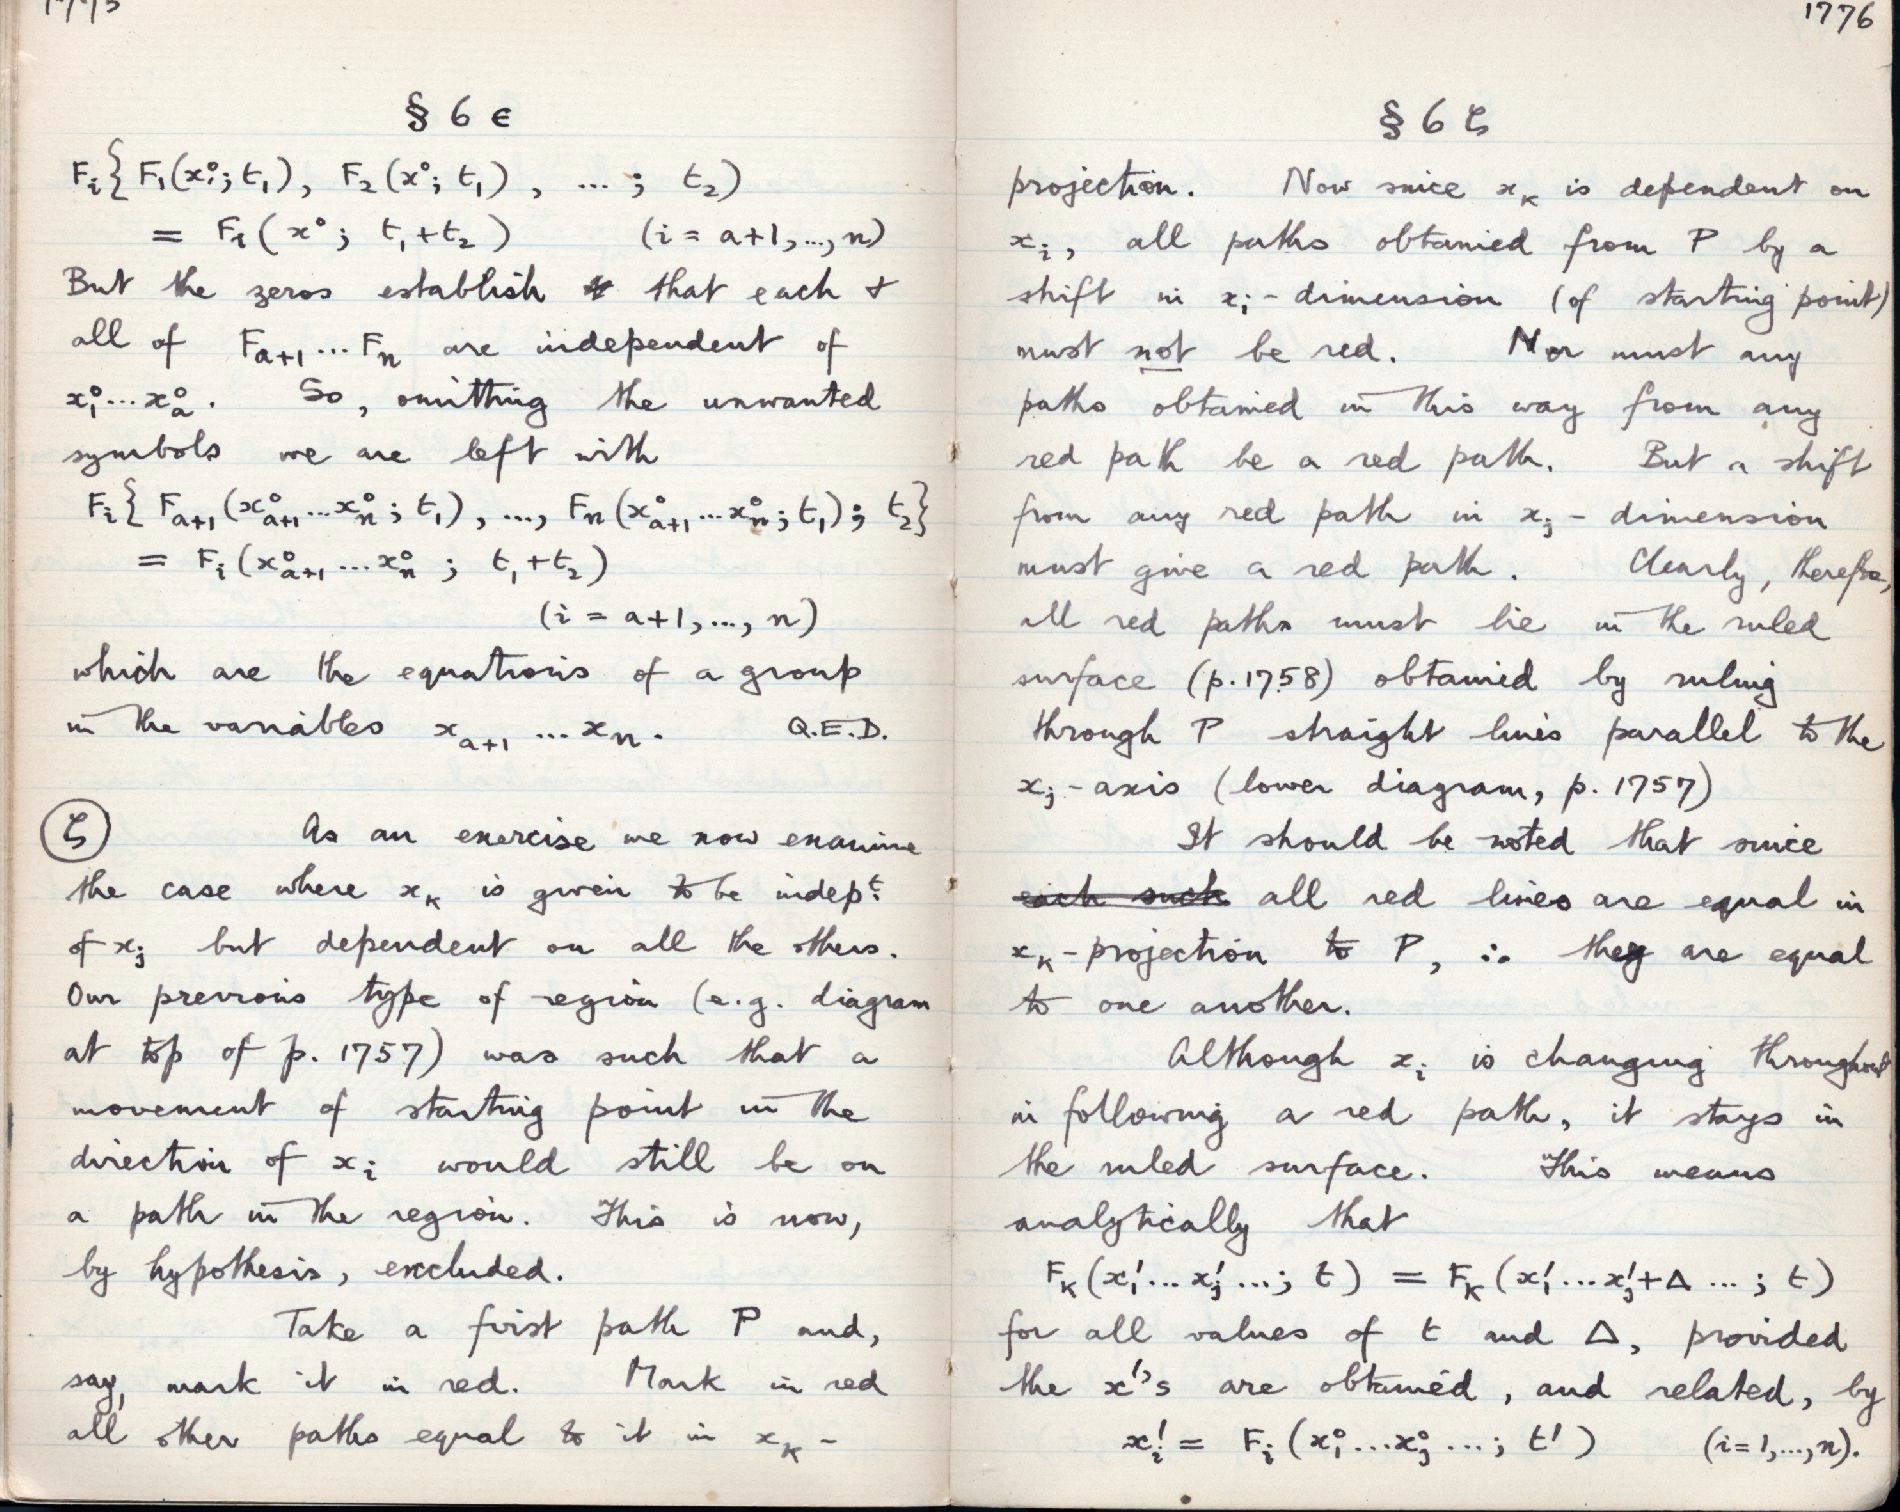 1775
§ 6 ϵ
Fi{ F1(x°i; t1), F2(x°; t1), ... ; t2)
= Fi(x°; t1+t2) (i = a+1, ..., n)
But the zeros establish that each &
all of Fa+1 ... Fn are independent of
x°1 ... x°a. So, omitting the unwanted
symbols we are left with
Fi{ Fa+1(x°a+1 ... x°n; t1), ..., Fn(x°a+1 ... x°n; t1); t2}
= Fi(x°a+1 ... x°n ; t1+t2)
(i = a+1, ..., n)
which are the equations of a group
in the variables xa+1 ... xn. Q.E.D.
ζ As an exercise we now examine
the case where xk is given to be indept.
of xj but dependent on all the others.
Our previous type of region (e.g. diagram
at top of p. 1757) was such that a
movement of starting point in the
direction of xi would still be on
a path in the region. This is now,
by hypothesis, excluded.
Take a first path P and,
say, mark it in red. Mark in red
all other paths equal to it in xk-
1776
§ 6 ζ
projection. Now since xk is dependent on
xi, all paths obtained from P by a
shift in xi-dimension (of starting point)
must not be red. Nor must any
paths obtained in this way from any
red path be a red path. But a shift
from any red path in xj-dimension
must give a red path. Clearly, therefore,
all red paths must lie in the ruled
surface (p. 1758) obtained by ruling
through P straight lines parallel to the
xj-axis (lower diagram, p. 1757)
It should be noted that since
each such all red lines are equal in
xk-projection to P, ∴ they are equal
to one another.
Although xi is changing throughout
in following a red path, it stays in
the ruled surface. This means
analytically that
Fk(x'1 ... x'j ...; t) = Fk(x'1 ... x'j+Δ ... ; t)
for all values of t and Δ, provided
the x''s are obtained, and related, by
x'i = Fi(x°1 ... x°j ...; t') (i=1, ..., n).